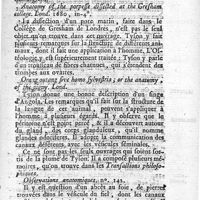 Anatomy of the porpess dissected at the Gresham
college. Lond. 1680, in-4°.
La dissection d'un porc marin, faite dans le
College de Gresham de Londres, n'est pas le seul
objet qu'on trouve dans cet ouvrage. Tyson y fait
plusieurs remarques sur la structure de différens ani-
maux, dont il fait une application à l'homme. L'Os-
téologie, y est supérieurement traitée : Tyson y parle
d'un trousseau de fibres charnues, qui s'étendent des
trompes aux ovaires.
Orang outang sive homo sylvestris; or the anatomy
of the pigmy. Lond.
Tyson donne une bonne description d'un singe
d'Angola. Les remarques qu'il fait sur la structure de
la langue de cet animal, peuvent s'appliquer à
l'homme à plusieurs égards. Il y observe que le
péritoine n'est point percé, &c. il y a découvert au
gland, des corps glanduleux, qu'il a nommés
glandes odorantes. Il admet la communication des
canaux déférents avec les vésicules séminales.
Ce ne sont pas les seuls ouvrages qui soient sor-
tis de la plume de Tyson. Il a composé plusieurs mé-
moires, qu'on trouve dans les Transactions philoso-
phiques.
Observations anatomiques, n°. 142.
Il y est question d'un abcès au foie, de pierres
trouvées dans le véhicule du fiel, dont les canaux